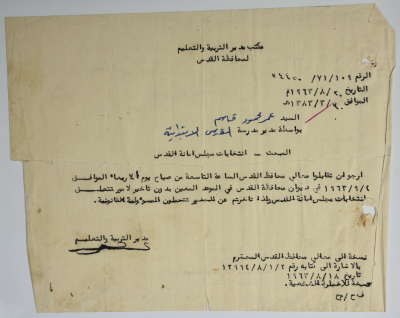 مكتب مدير التربية والتعليم
لمحافظة القدس
الرقم ١٠٩/٧١/
التاريخ ٢٠/٨/١٩٦٣م
الموافق /٣/١٣٨٣ه
السيد عمر محمود
بواسطة مدير مدرسة القدس الابتدائية
المبحث - انتخابات مجلس امانة القدس
ارجو ان تقابلوا معالي محافظ القدس الساعة التاسعة من صباح يوم الاربعاء الموافق
٤/٩/١٩٦٣ في ديوان محافظة القدس في الموعد المعين بدون تأخير لامور تتعلق
انتخابات مجلس امانة القدس واذا تأخرتم عن الحضور تتحملون المسؤولية القانونية .
مدير التربية والتعليم
نسخة الى معالي محافظ القدس المحترم
بالاشارة الى كتابه رقم ١٢١٦٤/٨/١/٢
تاريخ ١٨/٨/١٩٦٣
نسخة للاضبارة الشخصية .
ف ح/